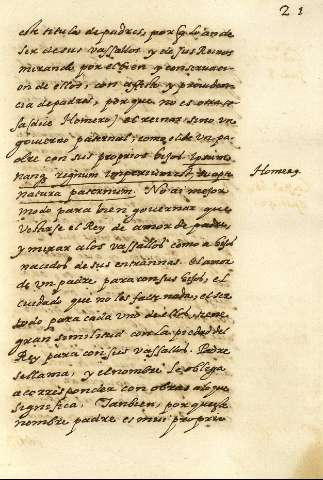 21
este titulo de padres, porq̃ lo an de
ser de sus vassallos y de sus Reinos
mirando por el bien y conservacion
on de ellos, con affecto y providen
cia de padre, porque, no es otra co
sa (dice Homero) el reinar, sino un
govierno paternal, como el de un pa
dre con sus proprios hijos. Ipsum
namq̃ regnum imperium est, suapte
natura paternum. No ai mejor
modo para bien governar que
vestirse el Rey de amor de padre,
y mirar a los vassallos como a hijos
nacidos de sus entrannas. El amor
de un padre para con sus hijos, el
cuidado que no les falte nada, el ser
todo para cada uno de ellos, tiene
gran similitud con la piedad del
Rey para con sus vassallos. Padre
se llama, y el nombre le obliga
a corresponder con obras a lo que
significa. Tanbien, porque este
nombre padre es mui proprio
Homero